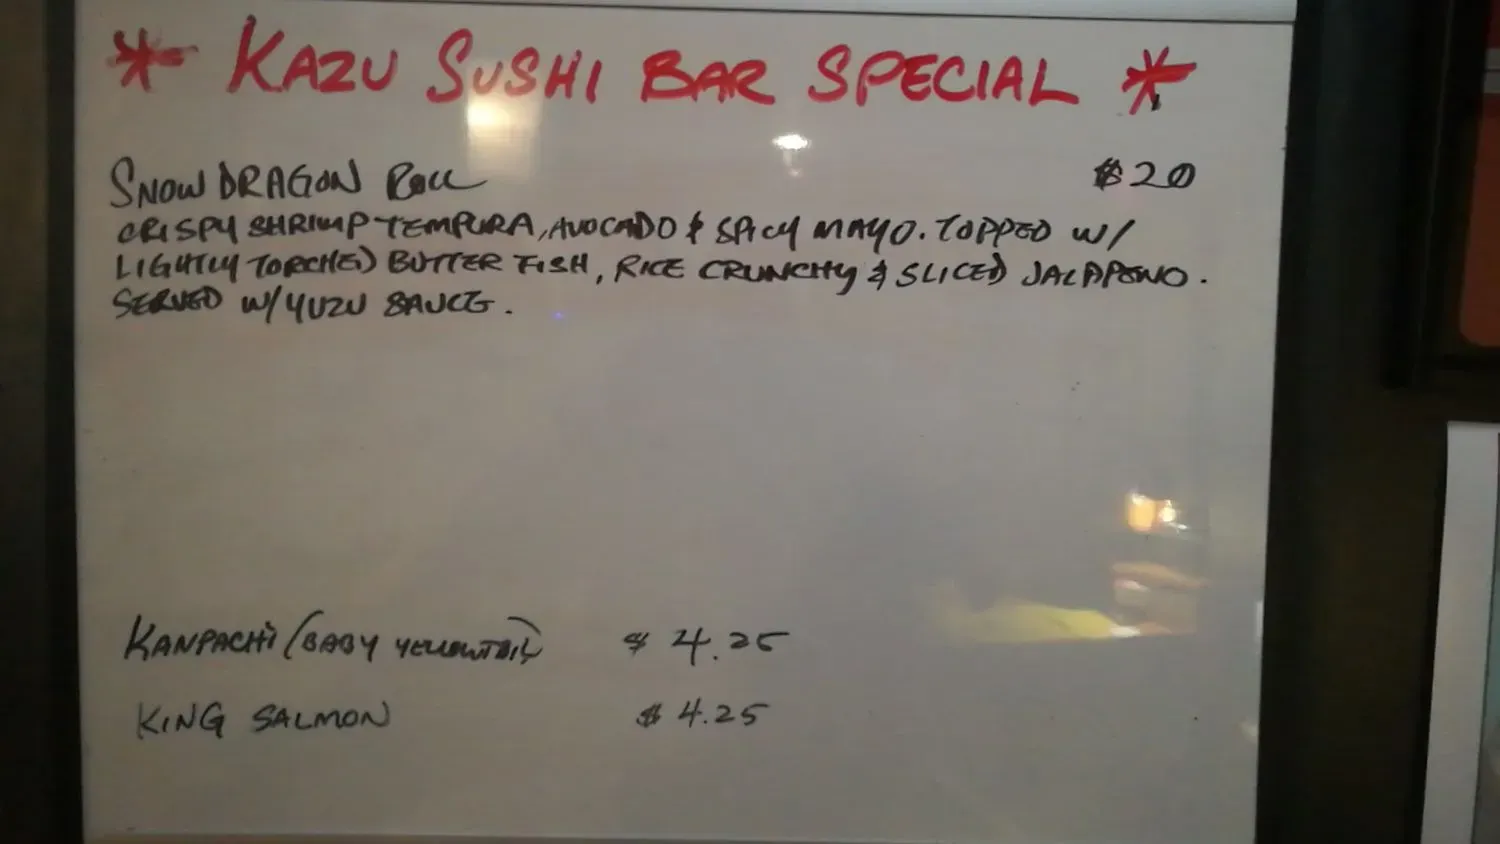 * KAZU SUSHI BAR SPECIAL *
SNOW DRAGON ROLL $20
CRISPY SHRIMP TEMPURA, AVOCADO & SPICY MAYO. TOPPED W/
LIGHTLY TORCHED BUTTER FISH, RICE CRUNCHY & SLICED JALAPPENO.
SERVED W/ YUZU SAUCE.
KANPACHI (BABY YELLOWTAIL) $4.25
KING SALMON $4.25